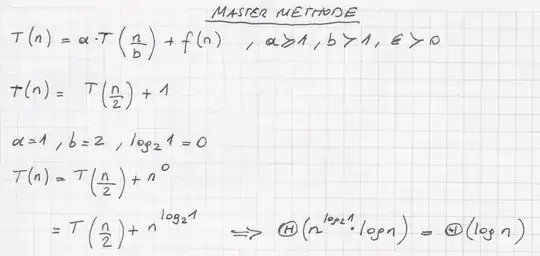 MASTER METHODE
T(n) = a · T(n/b) + f(n) , a ≥ 1, b > 1, ε > 0
T(n) = T(n/2) + 1
a = 1, b = 2, log₂1 = 0
T(n) = T(n/2) + n⁰
= T(n/2) + n^(log₂1) ⇒ Θ(n^(log₂1) · log n) = Θ(log n)